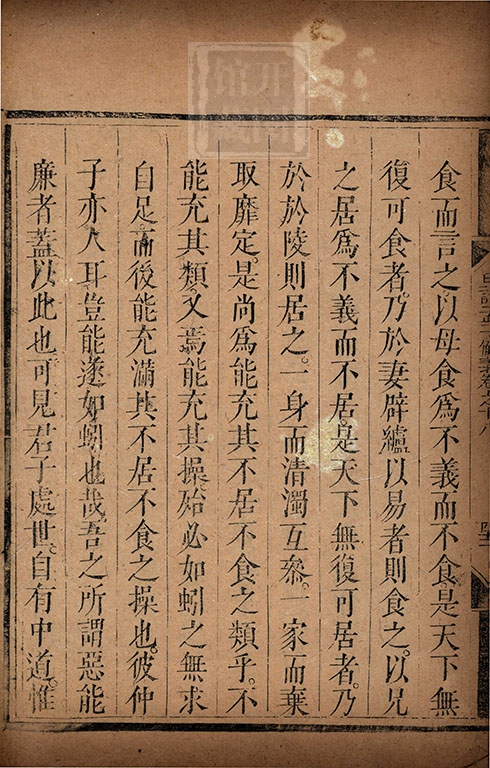 食而言之以母食為不義而不食是天下無
復可食者乃於妻辟纑以易者則食之以兄
之居為不義而不居是天下無復可居者乃
於於陵則居之一身而清濁互叅一家而棄
取靡定是尚為能充其不居不食之類乎不
能充其類又焉能充其操殆必如蚓之無求
自足而後能充滿其不居不食之操也彼仲
子亦人耳豈能遂如蚓也哉吾之所謂惡能
廉者蓋以此也可見君子處世自有中道惟